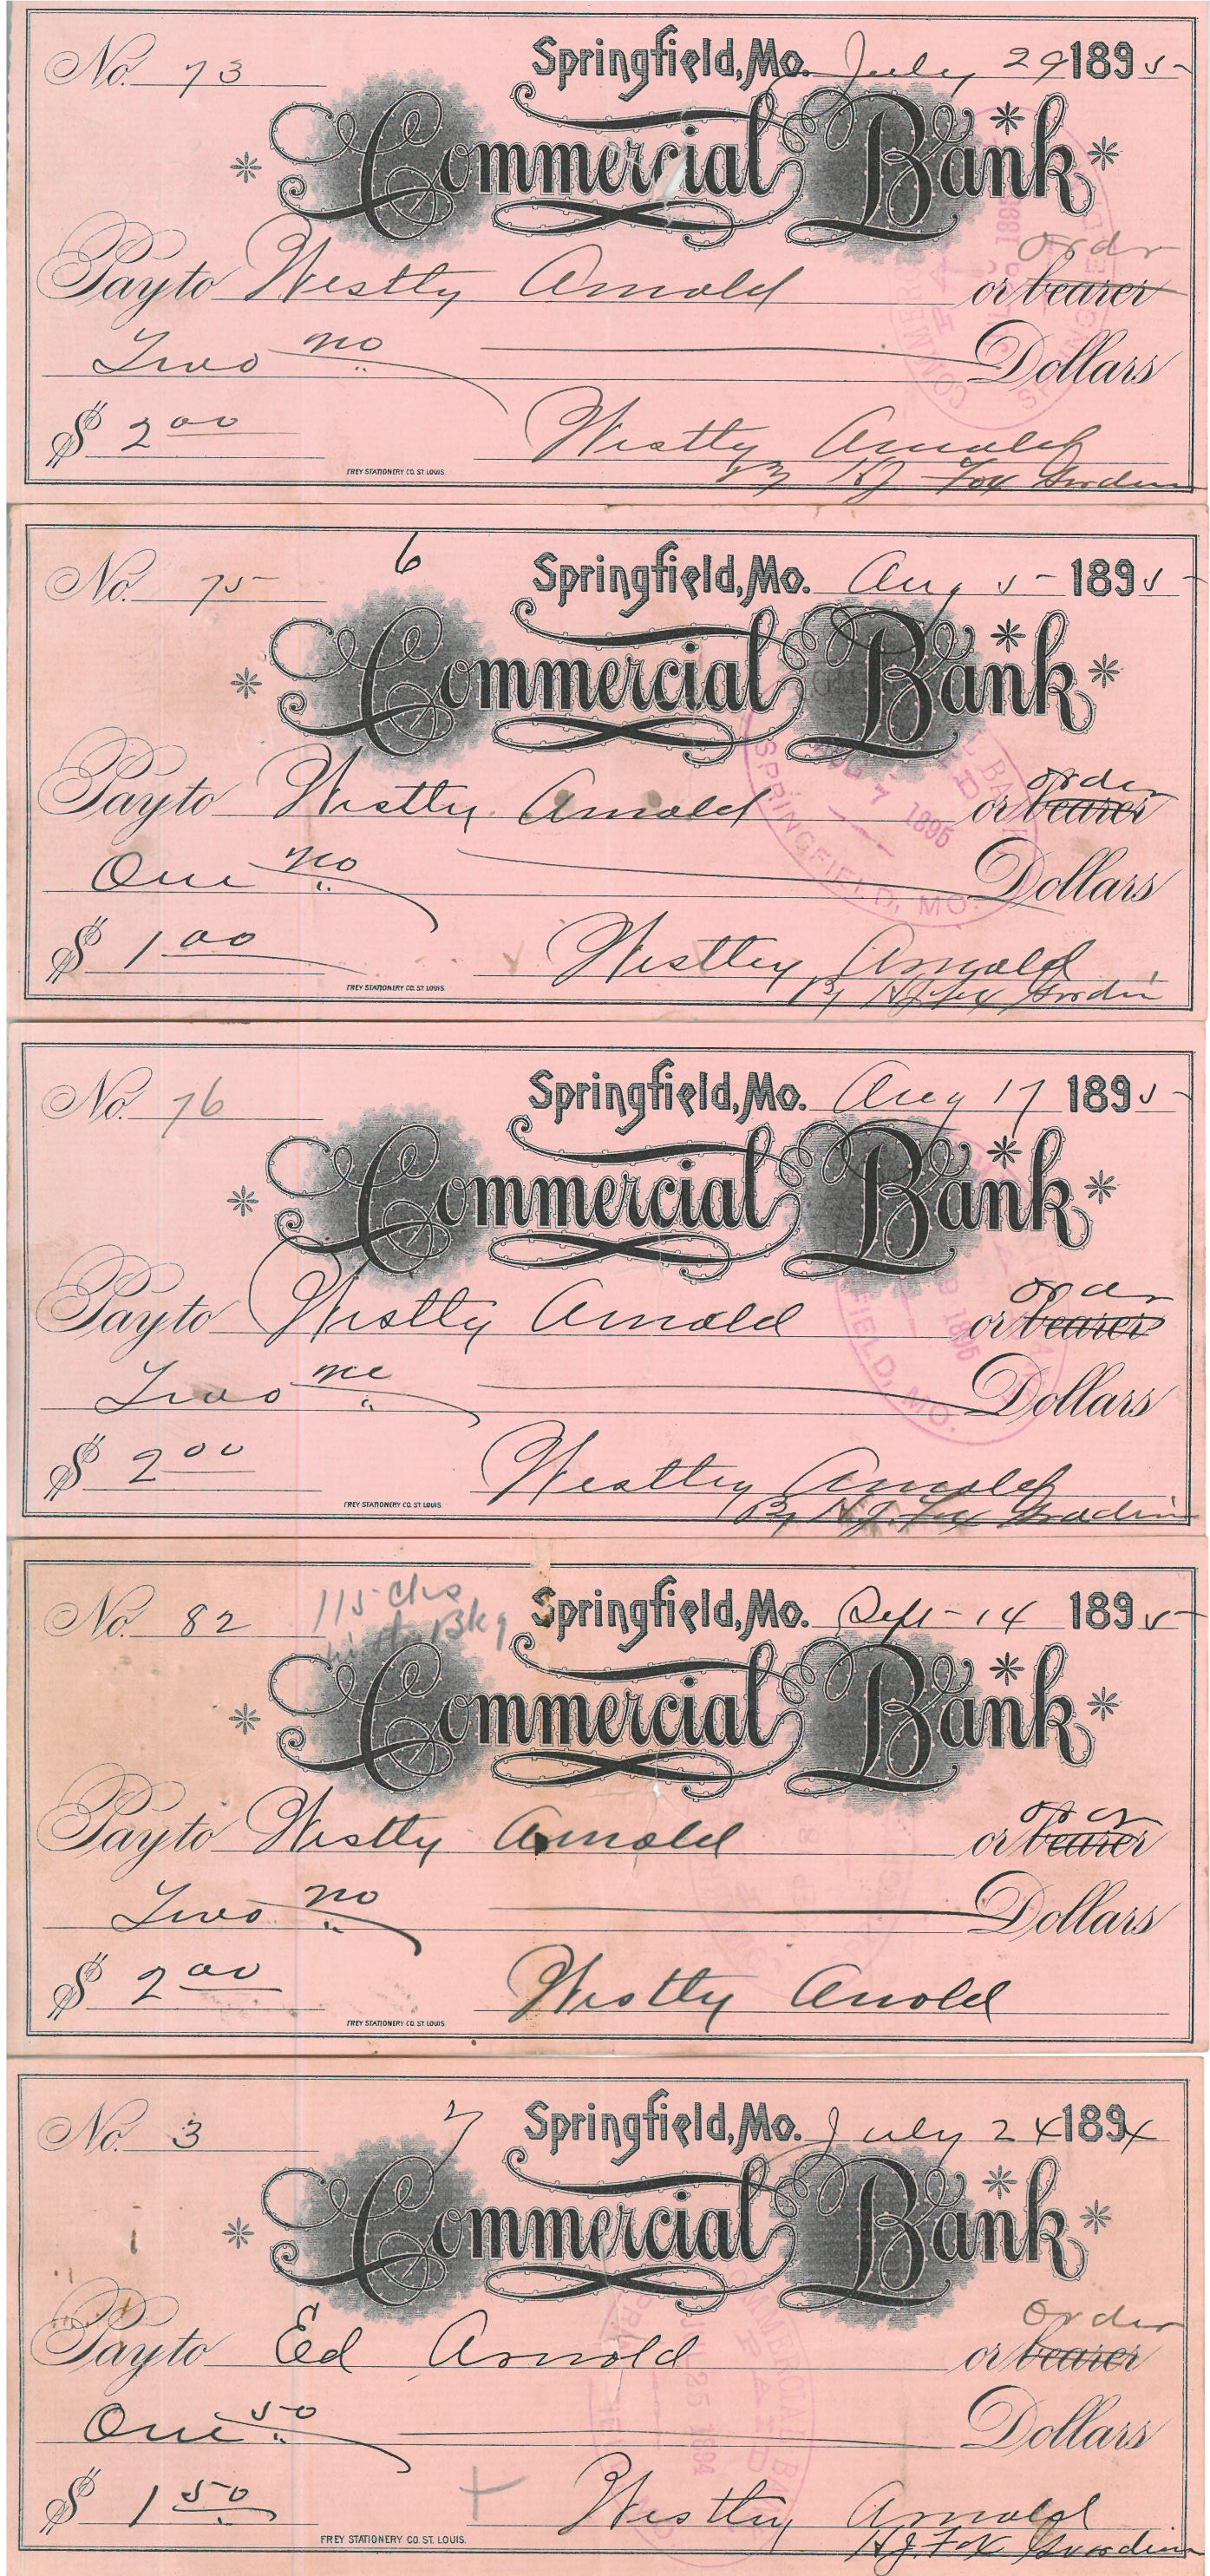 No. 73 Springfield, Mo. July 29 1895
Commercial Bank
order
Pay to Westly Arnold or bearer
Two no Dollars
$ 2 00 Westly Arnold
FREY STATIONERY CO. ST. LOUIS. By HJ Fox Guardian
6
No. 75 Springfield, Mo. Aug 5 1895
Commercial Bank
order
Pay to Westly Arnold or bearer
1895
SPRINGFIELD, MO.
One no Dollars
$ 1 00 Westley Arnold
FREY STATIONERY CO. ST. LOUIS. By HJ Fox Guardian
No. 76 Springfield, Mo. Aug 17 1895
Commercial Bank
order
Pay to Westly Arnold or bearer
Two no Dollars
$ 2 00 Westley Arnold
FREY STATIONERY CO. ST. LOUIS. By H.J. Fox Guardian
115 Chs
No. 82 Springfield, Mo. Sept 14 1895
Commercial Bank
order
Pay to Westly Arnold or bearer
Two no Dollars
$ 2 00 Westly Arnold
FREY STATIONERY CO. ST. LOUIS.
7
No. 3 Springfield, Mo. July 24 1894
Commercial Bank
order
Pay to Ed Arnold or bearer
One 50 Dollars
$ 1 50 Westley Arnold
FREY STATIONERY CO. ST. LOUIS. H.J. Fox Guardian